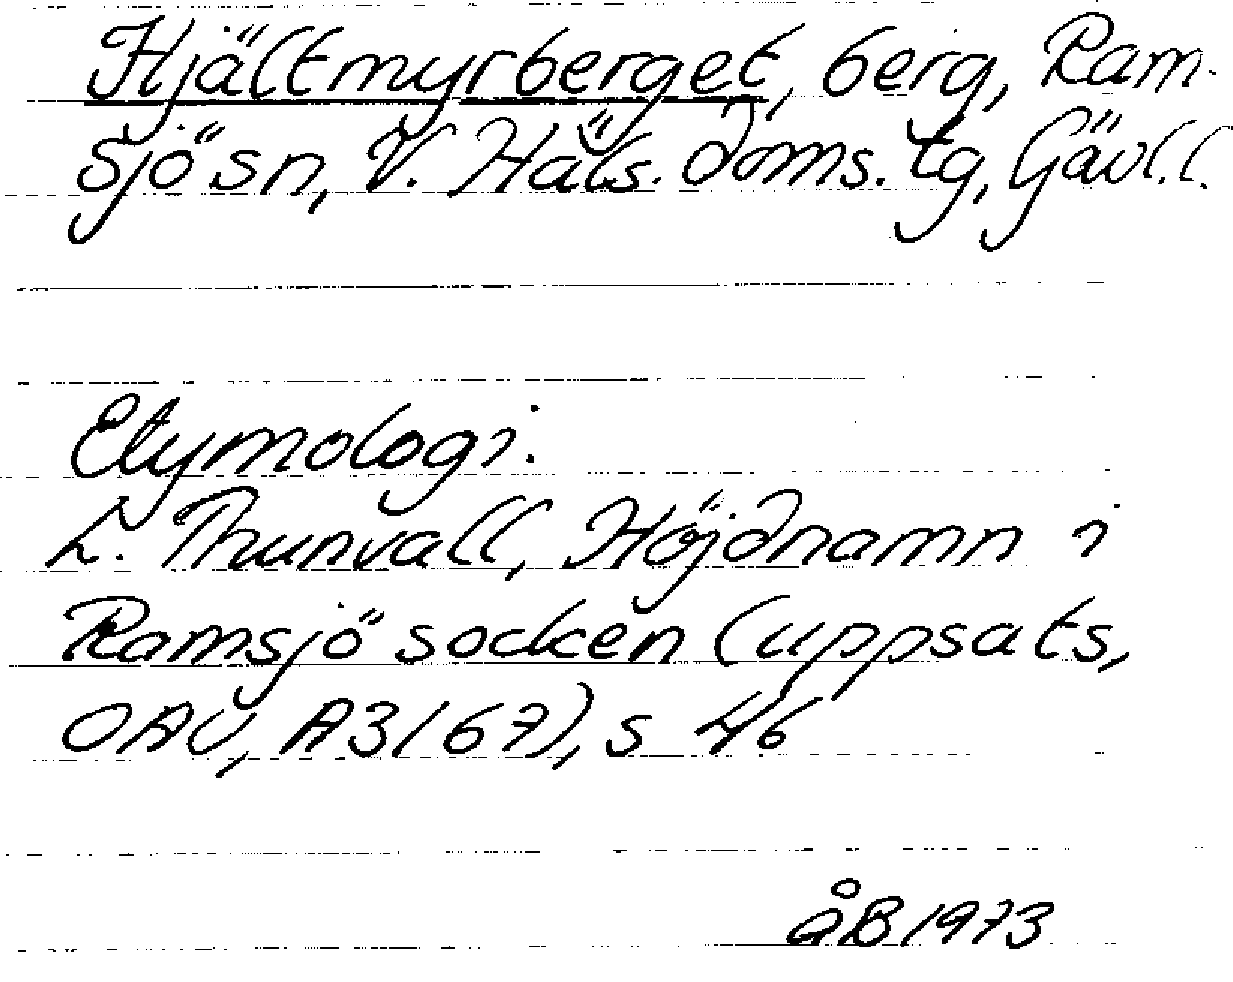 Hjältmyrberget, berg, Ram-
sjö sn, V. Häls. doms. tg, Gävl. l.
Etymologi:
L. Thunvall, Höjdnamn i
Ramsjö socken (uppsats,
OAU, A3167), s 46
åB 1973